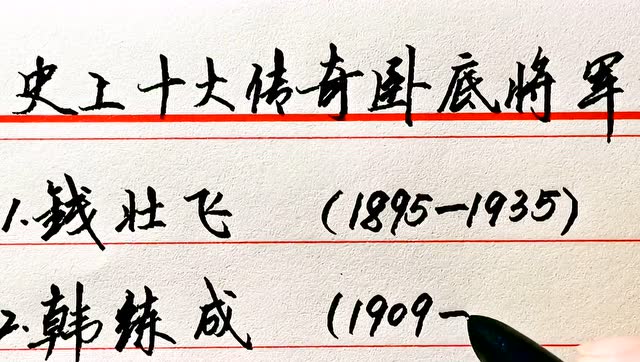 史上十大传奇卧底將军
1.錢壮飞 (1895-1935)
2.韩练成 (1909-